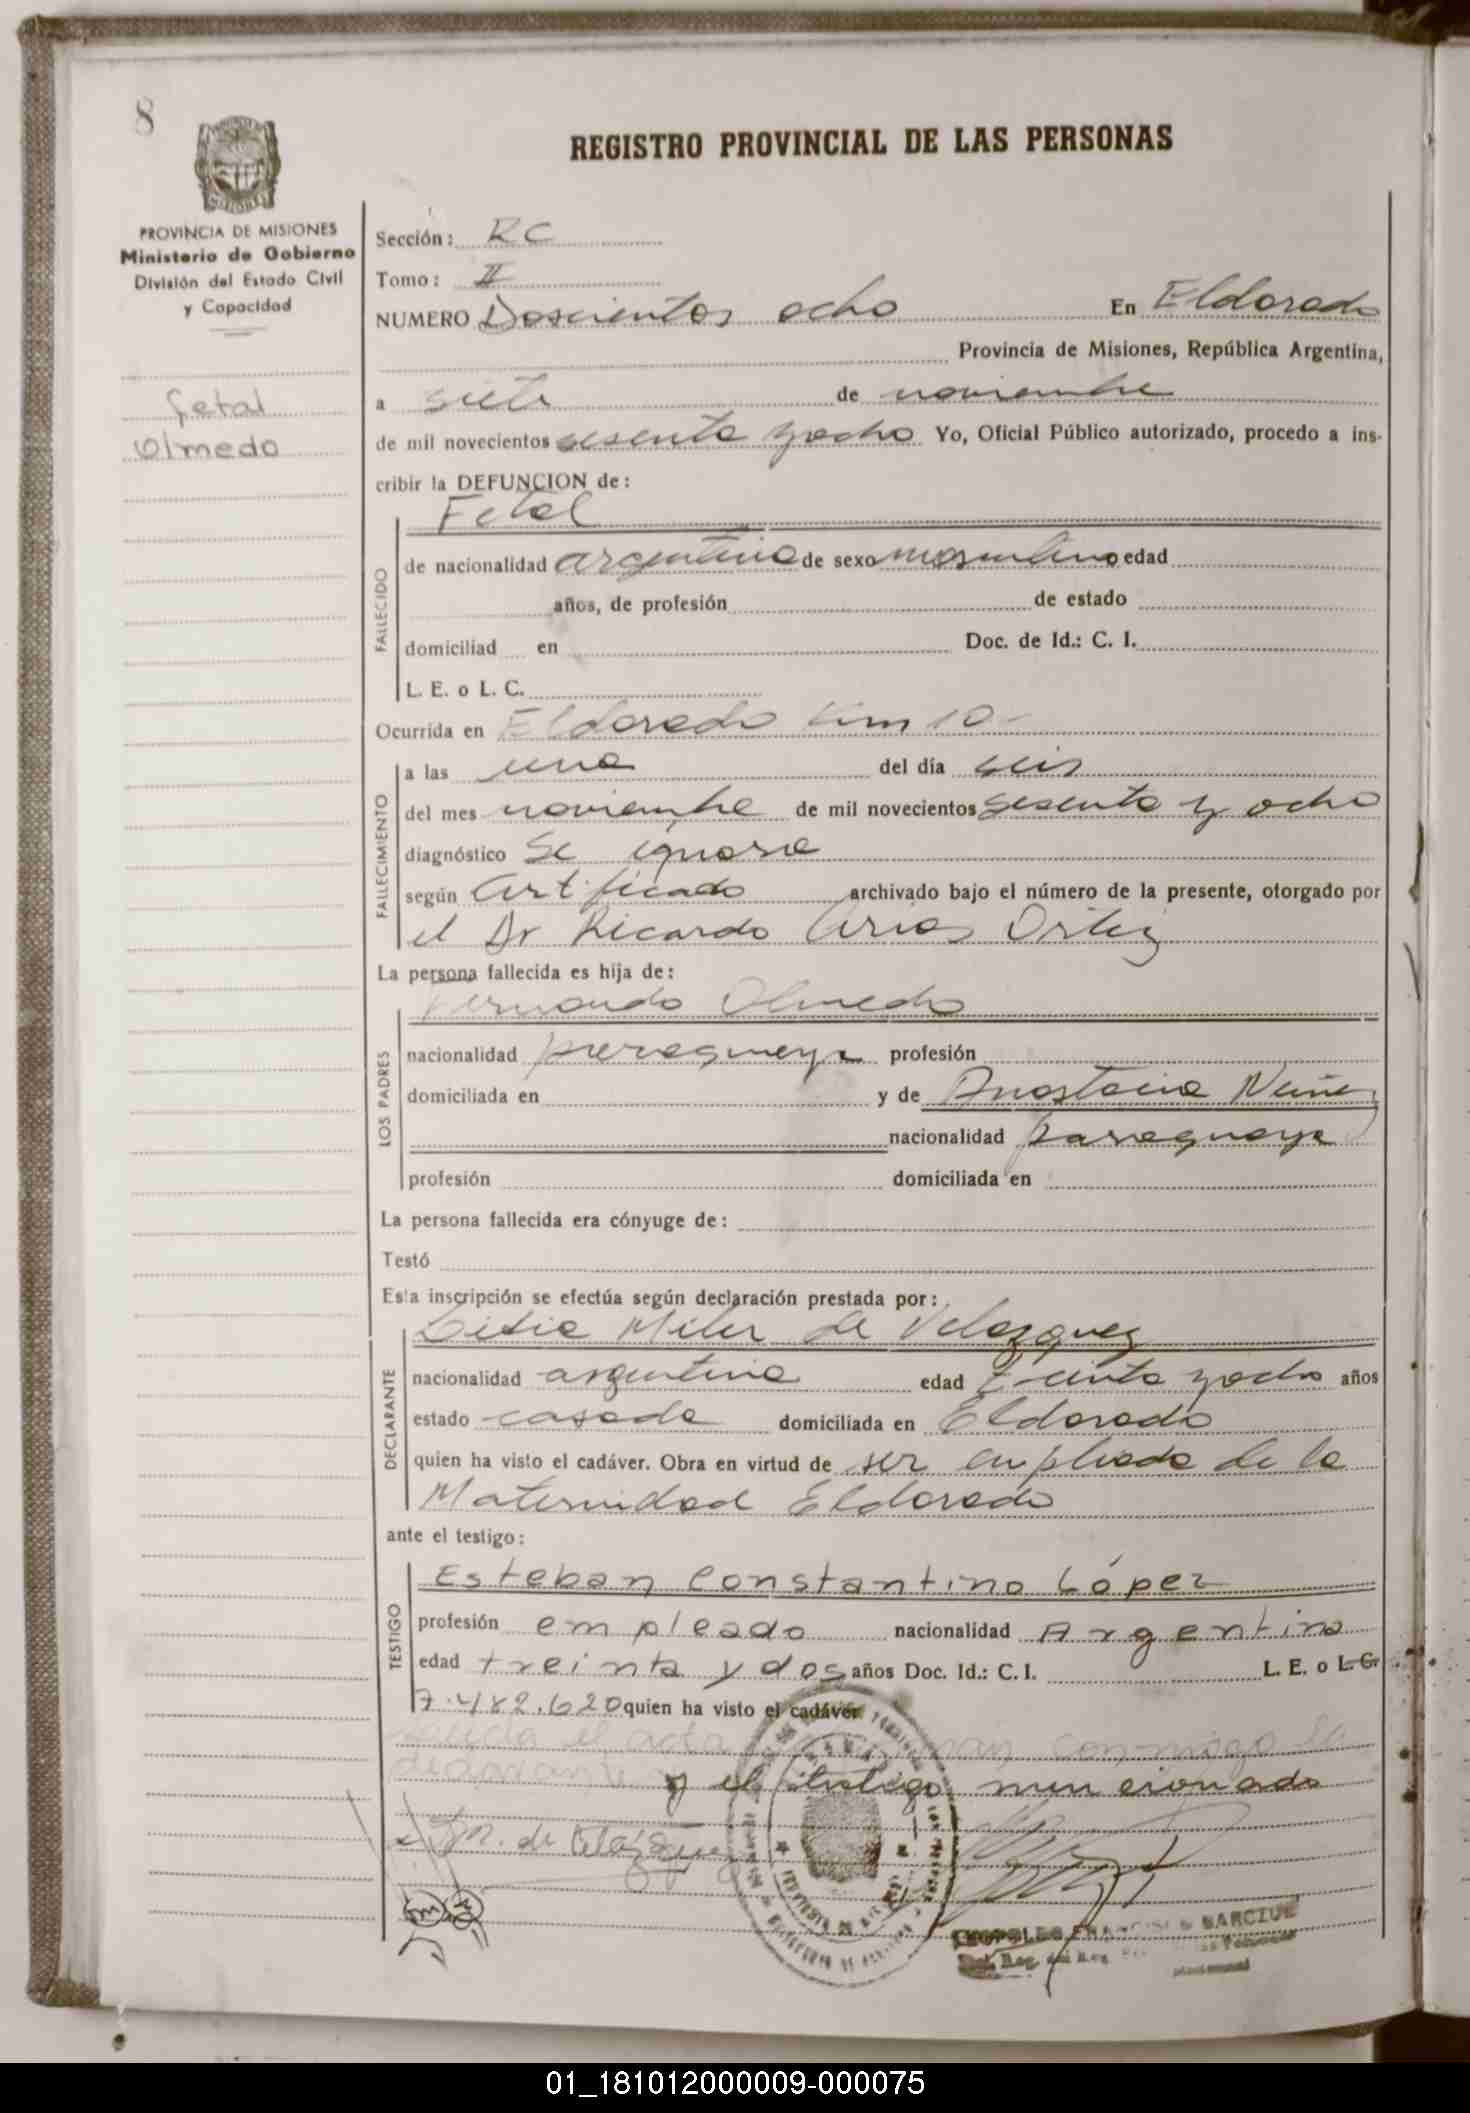 8
REGISTRO PROVINCIAL DE LAS PERSONAS
PROVINCIA DE MISIONES
Ministerio de Gobierno
División del Estado Civil
y Capacidad
fetal
Olmedo
Sección: RC
Tomo: II
NUMERO Doscientos ocho En Eldorado
Provincia de Misiones, República Argentina,
a siete de noviembre
de mil novecientos sesenta y ocho Yo, Oficial Público autorizado, procedo a ins-
cribir la DEFUNCION de:
Fetal
FALLECIDO
de nacionalidad argentina de sexo masculino edad
años, de profesión de estado
domiciliad en Doc. de Id.: C. I.
L. E. o L. C.
Ocurrida en Eldorado Km 10-
FALLECIMIENTO
a las una del día seis
del mes noviembre de mil novecientos sesenta y ocho
diagnóstico Se ignora
según Certificado archivado bajo el número de la presente, otorgado por
el Dr Ricardo Arias Ortiz
La persona fallecida es hija de:
LOS PADRES
Fernando Olmedo
nacionalidad paraguaya profesión
domiciliada en y de Anastacia Nuñez
nacionalidad paraguaya
profesión domiciliada en
La persona fallecida era cónyuge de:
Testó
Esta inscripción se efectúa según declaración prestada por:
DECLARANTE
Miler de Velazquez
nacionalidad argentina edad treinta y ocho años
estado casada domiciliada en Eldorado
quien ha visto el cadáver. Obra en virtud de ser empleada de la
Maternidad Eldorado
ante el testigo:
TESTIGO
Esteban Constantino López
profesión empleado nacionalidad Argentina
edad treinta y dos años Doc. Id.: C. I. L. E. o L. C.
7.482.620 quien ha visto el cadáver
el acta conmigo la
y el testigo mencionado
M. de Velázquez
FRANCISCO
01_181012000009-000075